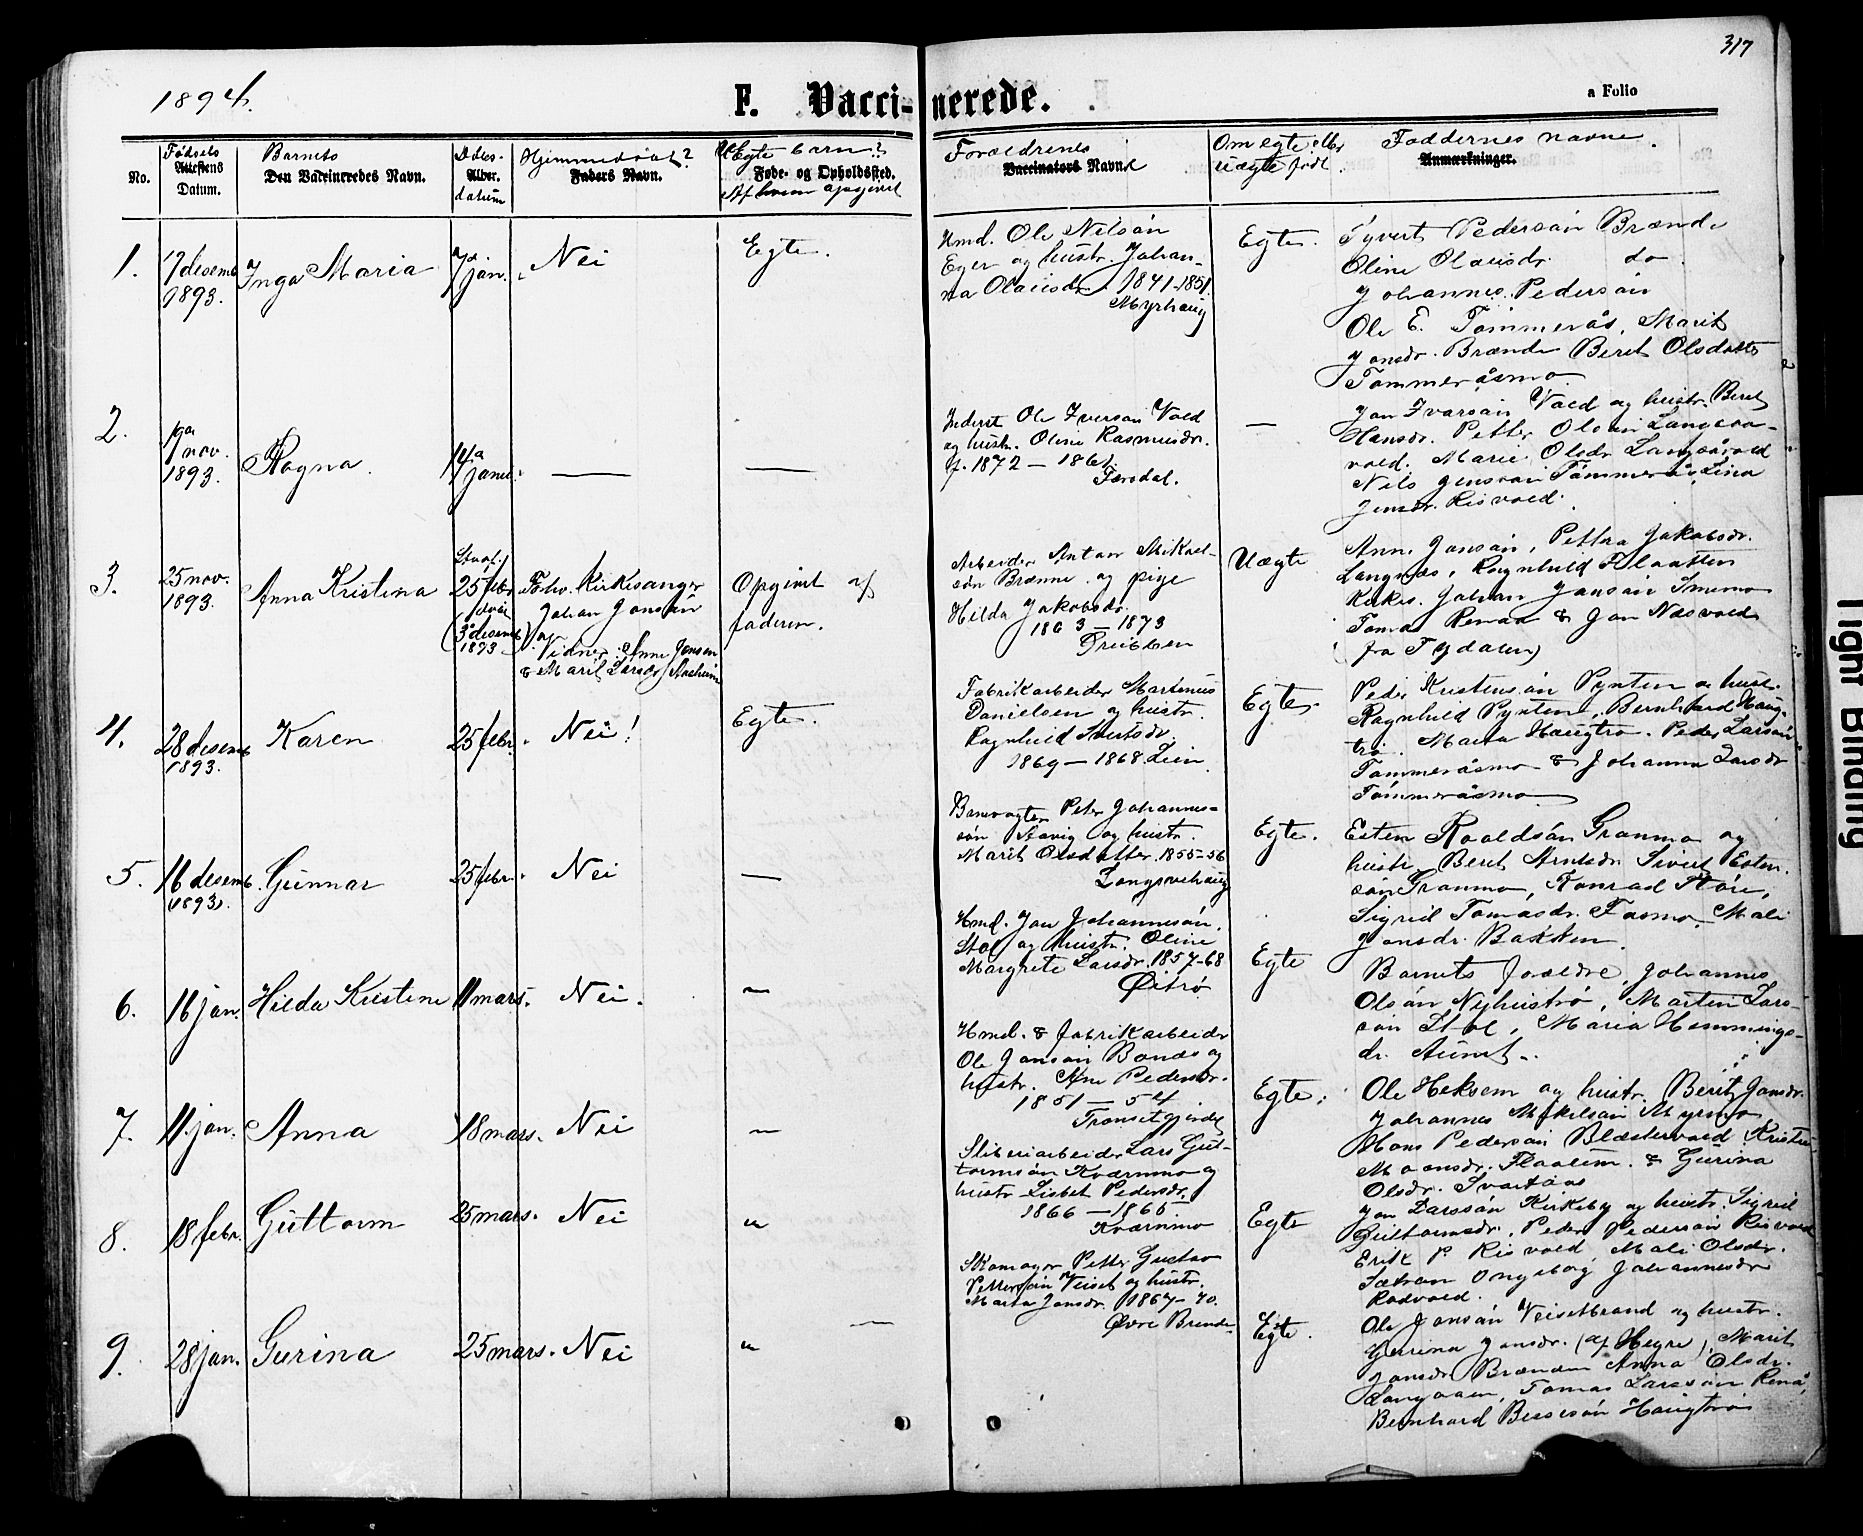 317
1894.
F. Vacci-nerede.
a Folio
No.
Fødsels
Attestens
Datum.
Barnets
Den Vaccineredes Navn.
Daabs-
Alder.
datum
Hjemmedøbt?
Faders Navn.
Egte barn?
Føde- og Opholdssted.
Af hvem opgivet
Forældrenes
Vaccinators Navn.
Om egte eller
uegte født.
Faddernes navne.
Anmærkninger.
1.
17 desemb
1893.
Inga Maria
7de jan.
Nei
Egte.
Hmd. Ole Nilsön
Eger og hustr. Johan-
na Olausdr. 1841-1851.
Myrhaug
Egte.
Syvert Pedersön Brænde
Oline Olausdr. do
Johannes Pedersön
Ole E. Tömmerås, Marit
Jonsdr. Brænde Beret Olsdatter
Tömmeråsmo
2.
nov.
1893.
Ragna.
14a
janu.
—
—
Inderst Ole Iversön Vold
og hustr. Oline Rasmusdr.
f. 1872 – 1861
Færsdal.
—
Jon Ivarsön Vold og hustr. Beret
Hansdr. Petter Olsön Langsaa-
vold. Marie Olsdr Langsåvold
Nils Jensön Tömmerås, Lina
Jensdr. Risvold.
3.
25 nov.
1893.
Anna Kristina
25 febr
(3 desemb
1893
Forhv. Kirkesanger
Johan Jonsön
Vidner: Anne Jonsen
& Marit Larsdr
Opgivet af
faderen.
Arbeider Anton Mikael-
sön Brænne og pige
Hilda Jakobsdr.
1863 – 1873
Uægte
Anne Jonsön, Pettra Jakobsdr.
Langnæs, Ragnhild Flaatten
Kirkes. Johan Jonsön
Tomas Renaa & Jon Næsvold
(fra Tydalen)
4.
28 desemb
1893.
Karen
25 febr.
Nei!
Egte.
Fabrikarbeider Martinus
Danielsen og hustr.
Ragnhild Sivertsdr.
1869 – 1868. Lein
Egte.
Peder Kristensön Pynten og hustr.
Ragnhild Pynten, Bernhard Haug-
trö. Marta Haugtrö. Peder Larsön
Tömmeråsmo & Johanna Larsdr
Tömmeråsmo
5.
16 desemb.
(1893).
Gunnar
25 febr.
Nei
—
Banevogter Peter Johannes-
sön og hustr.
Marit Olsdatter. 1855-56
Egte.
Esten Roaldsön Granmo og
hustr. Beret Arntsdr Sivert Esten-
sön Granmo, Konrad Störe,
Sigrid Tomasdr. Fosmo. Mali
Jonsdr. Bakken.
6.
16 jan.
Hilda Kristine
11 mars.
Nei.
—
Hmd. Jon Johannesön.
Stol og hustr. Oline
Margrete Larsdr. 1857-68
Egte
Barnets forældre, Johannes
Olsön Nyhuströ, Marten Lars-
sön Stol, Maria Hemmings-
dr. Aunet.
7.
11. jan.
Anna
18 mars.
Nei
—
Hmd. & fabrikarbeider
Ole Jonsön Bonæs og
hustr. Ane Pedersdr.
1851 – 54
Egte.
Ole Heksem og hustr. Berit Jonsdr.
Johannes Mikelsön Myrsmo
Hans Pedersön Blæstervold
Olsdr. Svartåas
8.
18 febr.
Guttorm
25 mars.
Nei
"
Sliberiarbeider Lars Gut-
tormsön Kværnmo og
hustr. Lisbet Pedersdr.
1866 – 1865
Kværnmo
Egte
Jon Larssön Kirkeby og hustr. Sigrid
Guttormsdr. Peder Pedersön Risvold
Erik P. Risvold, Mali Olsdr.
Sætran Ingeborg Johannesdr
Rodvold.
9.
28 jan.
Gurina
25 mars.
Nei
"
Skomager Petter Gustav
Pettersön Veiset og hustr.
Marta Jonsdr. 1867-70.
Øvre Brende
Egte.
Ole Jonsön Veisetbrand og hustr.
Gurina Jonsdr. (af Hegre), Marit
Jonsdr Brænden Anna Olsdr.
Langaaen, Tomas Larssön Renå,
Bernhard Haugtrö
Tight Binding